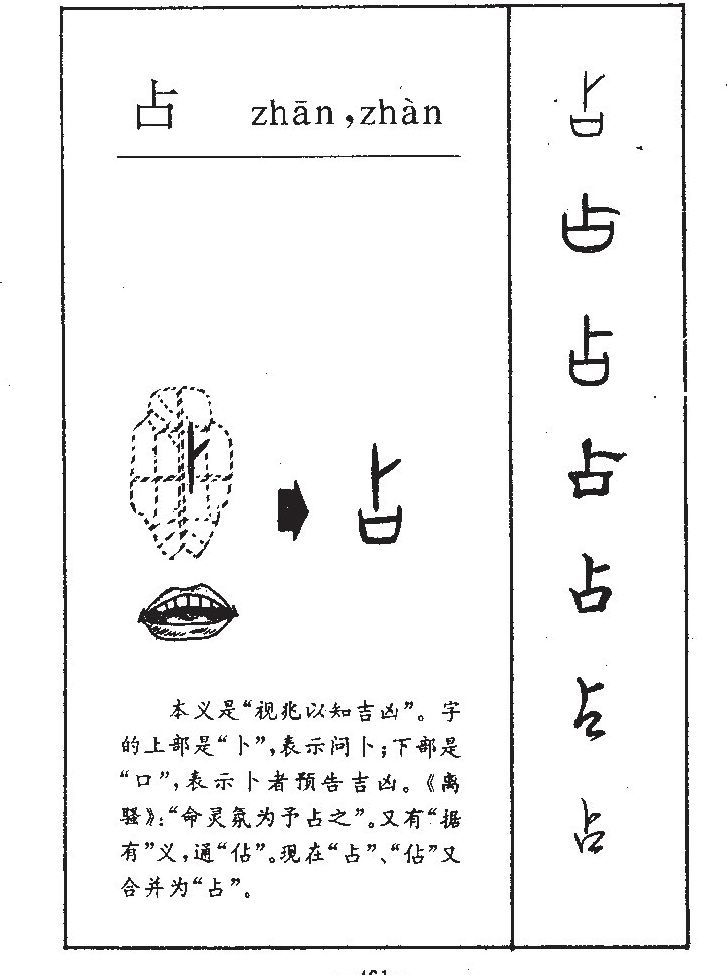 占 zhān,zhàn
占
占
占
占
占
占
占
占
本义是“视兆以知吉凶”。字
的上部是“卜”,表示问卜;下部是
“口”,表示卜者预告吉凶。《离
骚》:“命灵氛为予占之”。又有“据
有”义,通“佔”。现在“占”、“佔”又
合并为“占”。